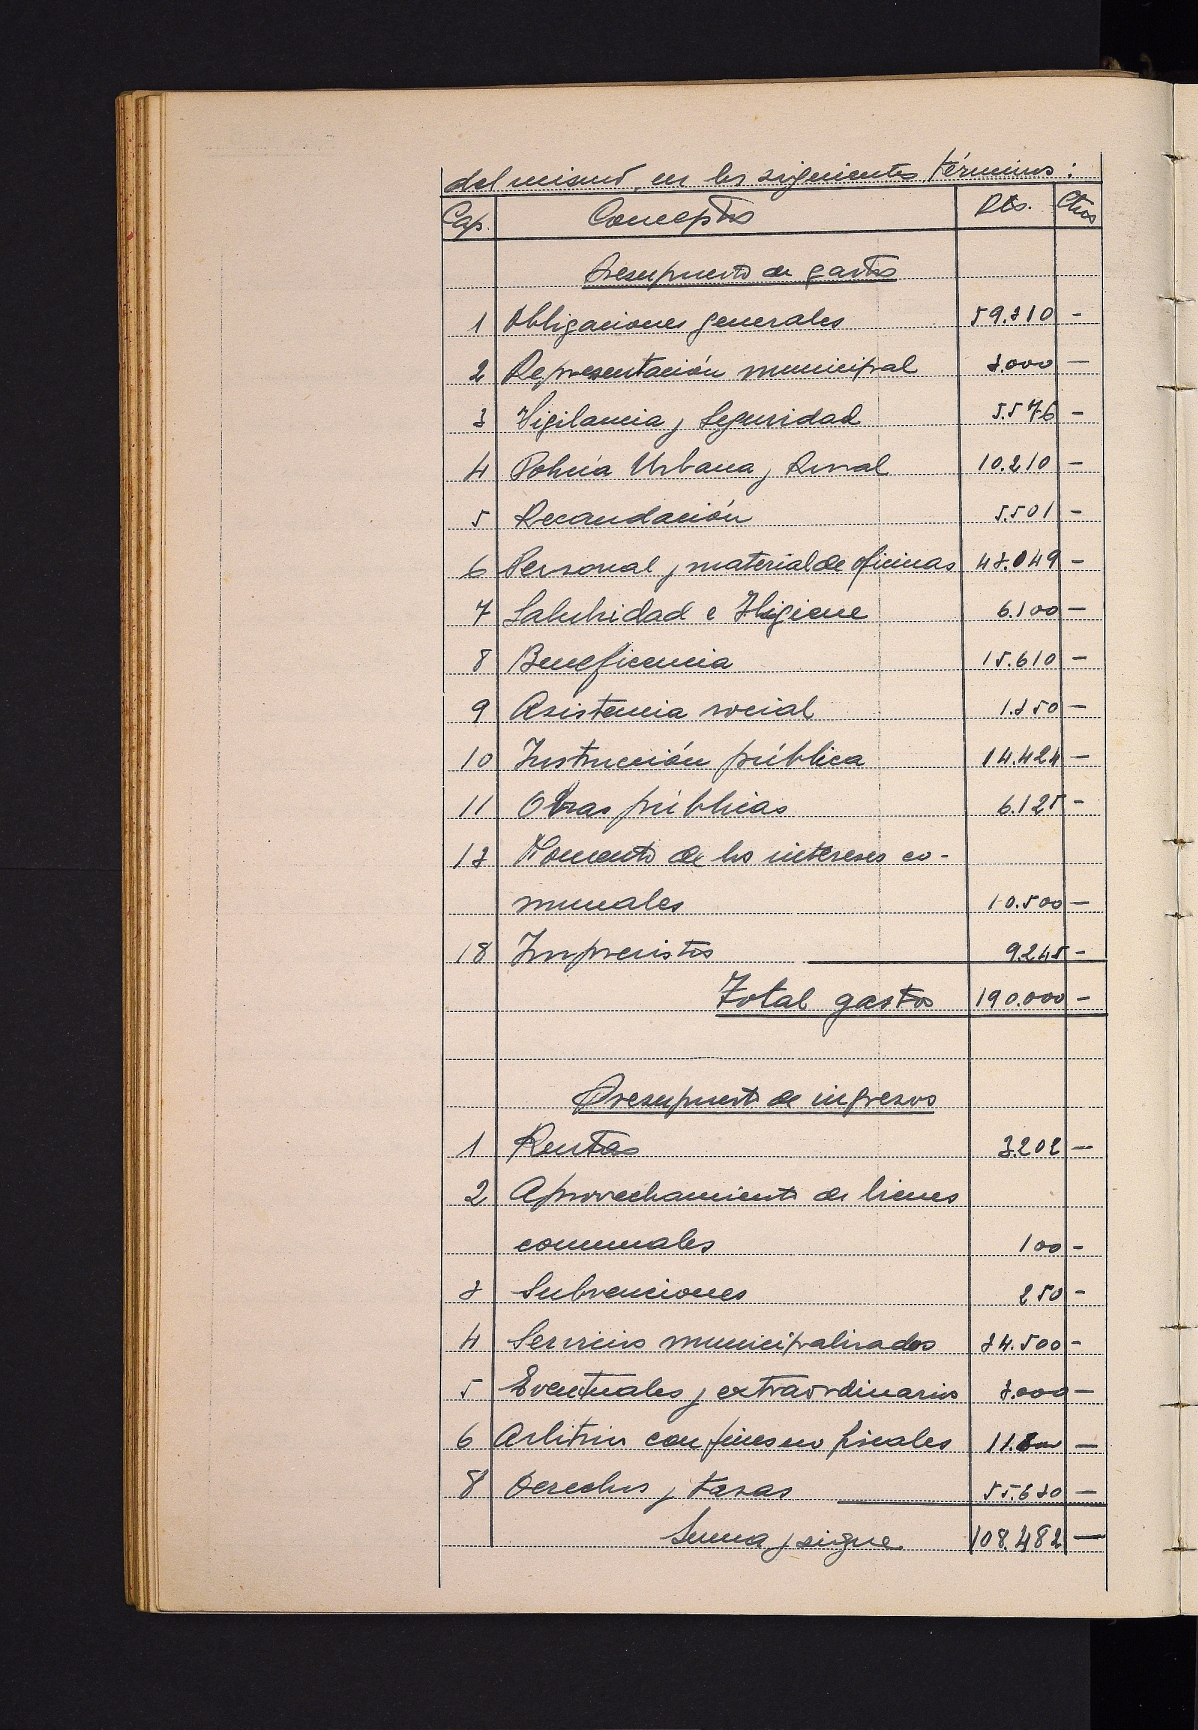 del mismo, en los siguientes términos:
Cap. Conceptos Pts. Ctmos
Presupuesto de gastos
1 Obligaciones generales 59.310 -
2 Representación municipal 3.000 -
3 Vigilancia y Seguridad 5.576 -
4 Policía Urbana y Rural 10.210 -
5 Recaudación 5.501 -
6 Personal y material de oficinas 43.049 -
7 Salubridad e Higiene 6.100 -
8 Beneficencia 15.610 -
9 Asistencia social 1.350 -
10 Instrucción pública 14.424 -
11 Obras públicas 6.125 -
13 Fomento de los intereses co-
munales 10.500 -
18 Imprevistos 9.245 -
Total gastos 190.000 -
Presupuesto de ingresos
1 Rentas 3.202 -
2 Aprovechamiento de bienes
comunales 100 -
3 Subvenciones 250 -
4 Servicios municipalizados 34.500 -
5 Eventuales y extraordinarios 3.000 -
6 Arbitrios con fines no fiscales 11.800 -
8 Derechos y tasas 55.630 -
Suma y sigue 108.482 -